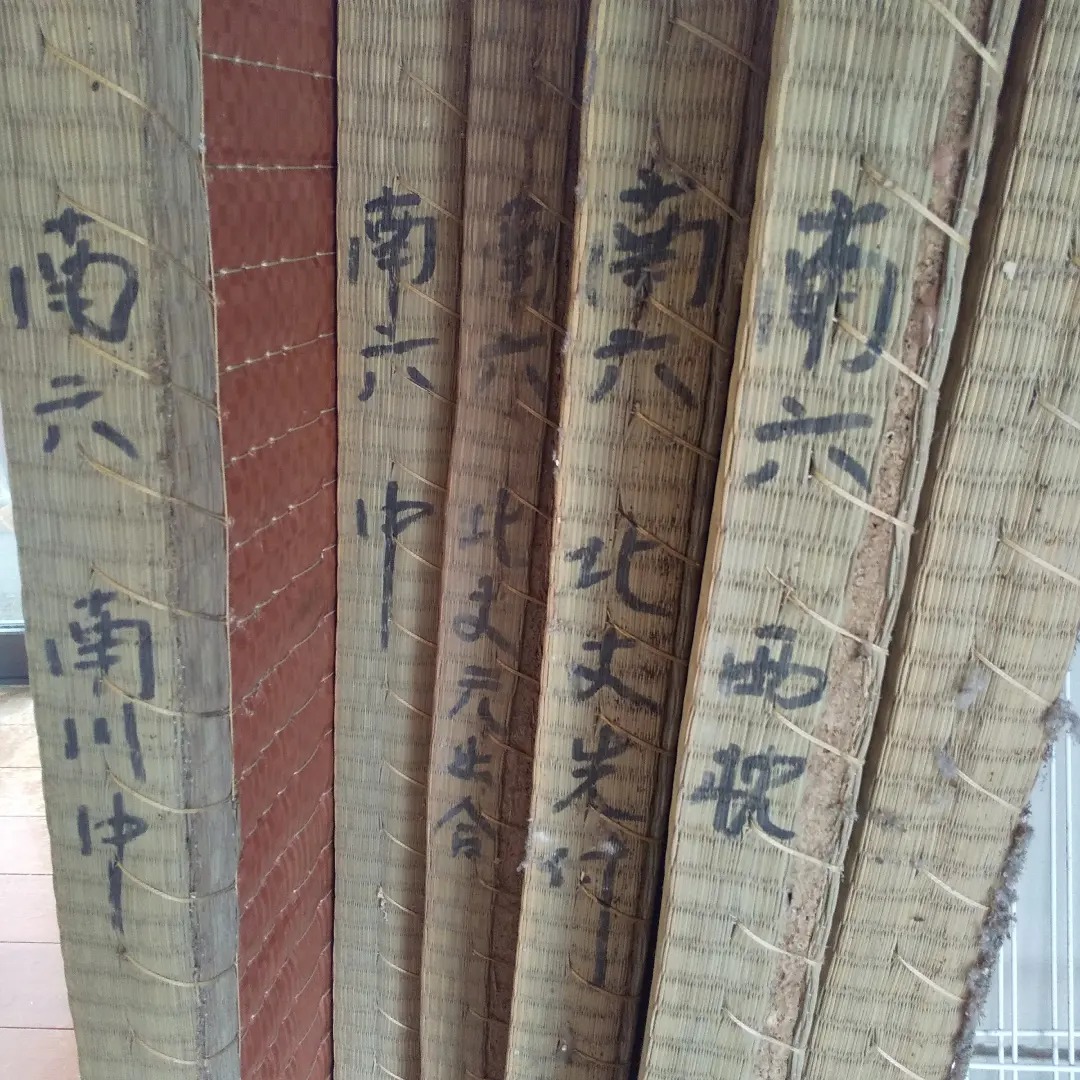 南六 南川中
南六 中
南六 北丈元出合
南六 北丈
南六 西